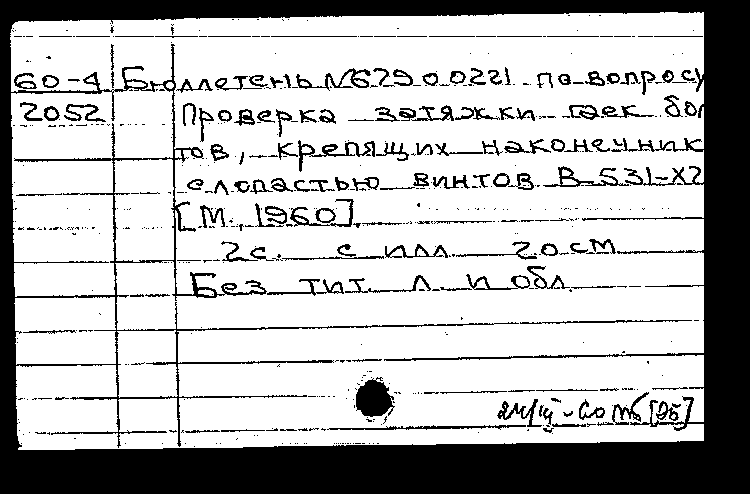 60-4 Бюллетень №6290.0221 по вопросу
2052 Проверка затяжки гаек бол
тов, крепящих наконечник
с лопастью винтов В-531-Х2
[М. 1960].
2 с. с илл 20 см
Без тит. л. и обл.